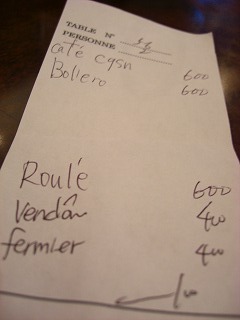 TABLE N°
PERSONNE
Café
Bollero 600
600
Roulé 600
Vendôn 400
fermier 400